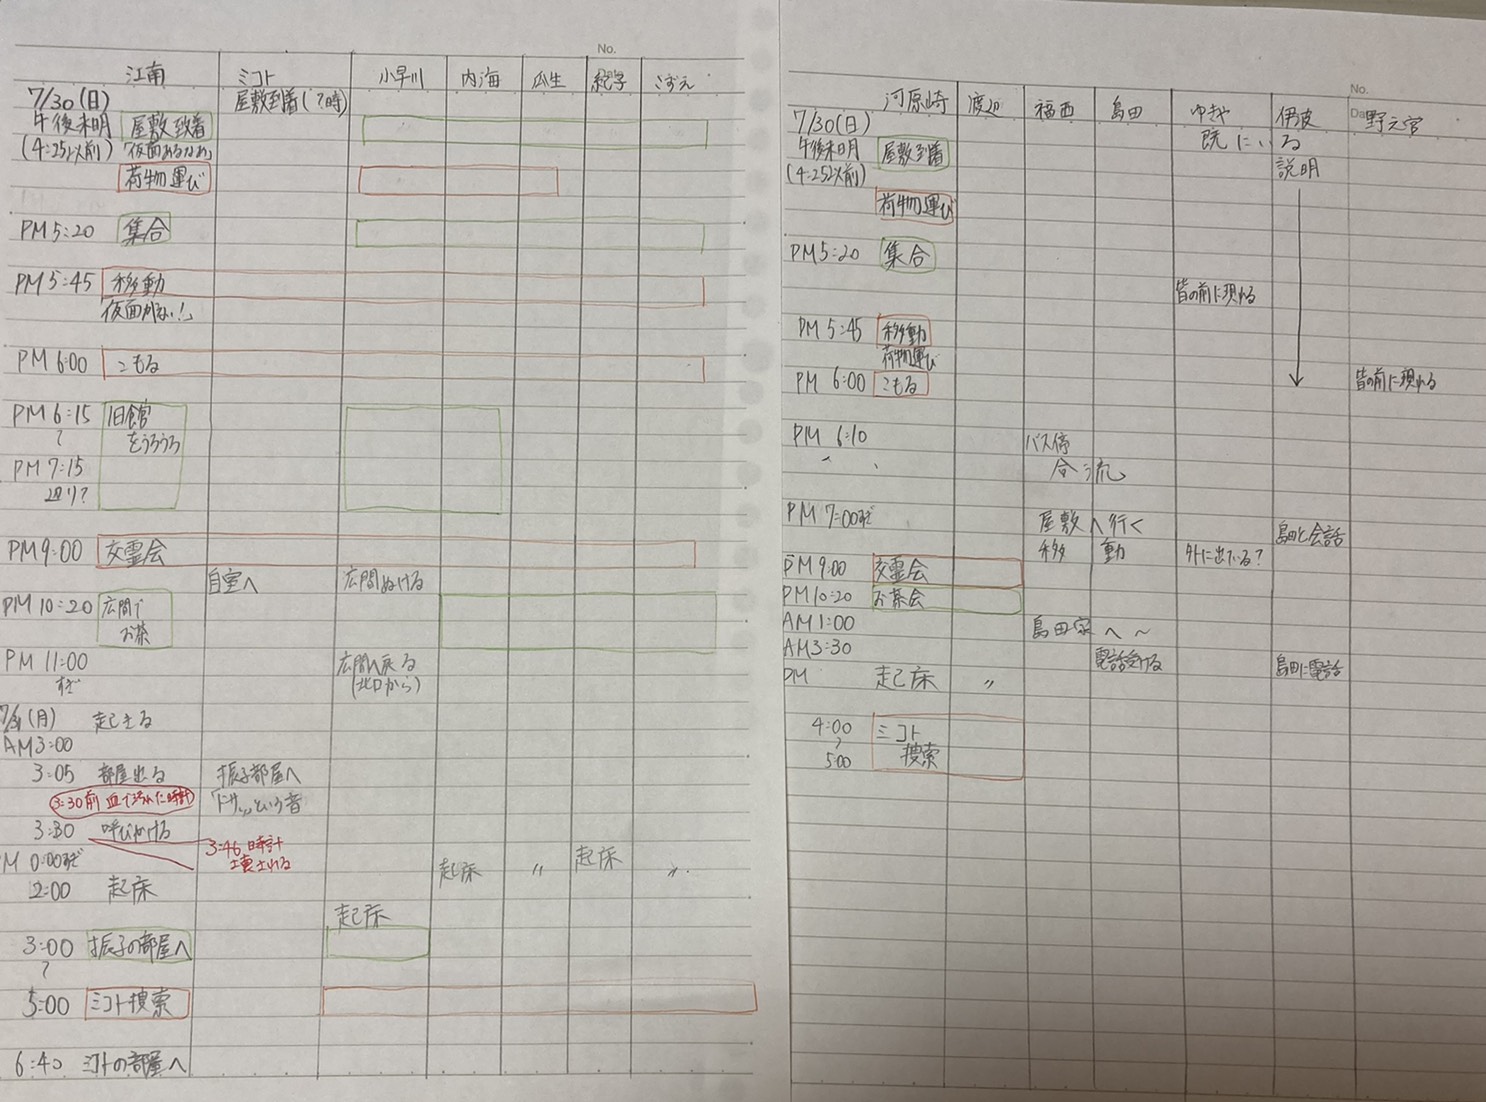 No.
江南 ミコト 小早川 内海 瓜生 紀学 こずえ
7/30(日) 屋敷到着(?時)
午後未明 屋敷到着
(4:25以前) 「仮面あるため」
荷物運び
PM 5:20 集合
PM 5:45 移動
仮面がない!」
PM 6:00 こもる
PM 6:15 旧館
〜 をうろうろ
PM 7:15
辺り?
PM 9:00 交霊会
自室へ 広間ぬける
PM 10:20 広間で
お茶
PM 11:00 広間へ戻る
すぎ (北口から)
7/31(月) 起きる
AM 3:00
3:05 部屋出る 振子部屋へ
3:30前 血で汚れた時計 「ドサッ」という音
3:30 呼びかける
3:46 時計
壊される
M 0:00すぎ 起床 〃 起床 〃
2:00 起床
起床
3:00 振子の部屋へ
〜
5:00 ミコト捜索
6:40 ミコトの部屋へ
No.
河原崎 渡辺 福西 島田 ゆきや 伊波 野之宮
7/30(日) 既にいる
午後未明 屋敷到着 説明
(4:25以前)
荷物運び
PM 5:20 集合
皆の前に現れる
PM 5:45 移動
荷物運び
PM 6:00 こもる 皆の前に現れる
PM 6:10 バス停
合流
PM 7:00すぎ 屋敷へ行く 島田と会話
移動 外に出ている?
PM 9:00 交霊会
PM 10:20 お茶会
AM 1:00 島田家へ〜
AM 3:30 電話受ける 島田に電話
PM 起床 〃
4:00 ミコト
〜 捜索
5:00